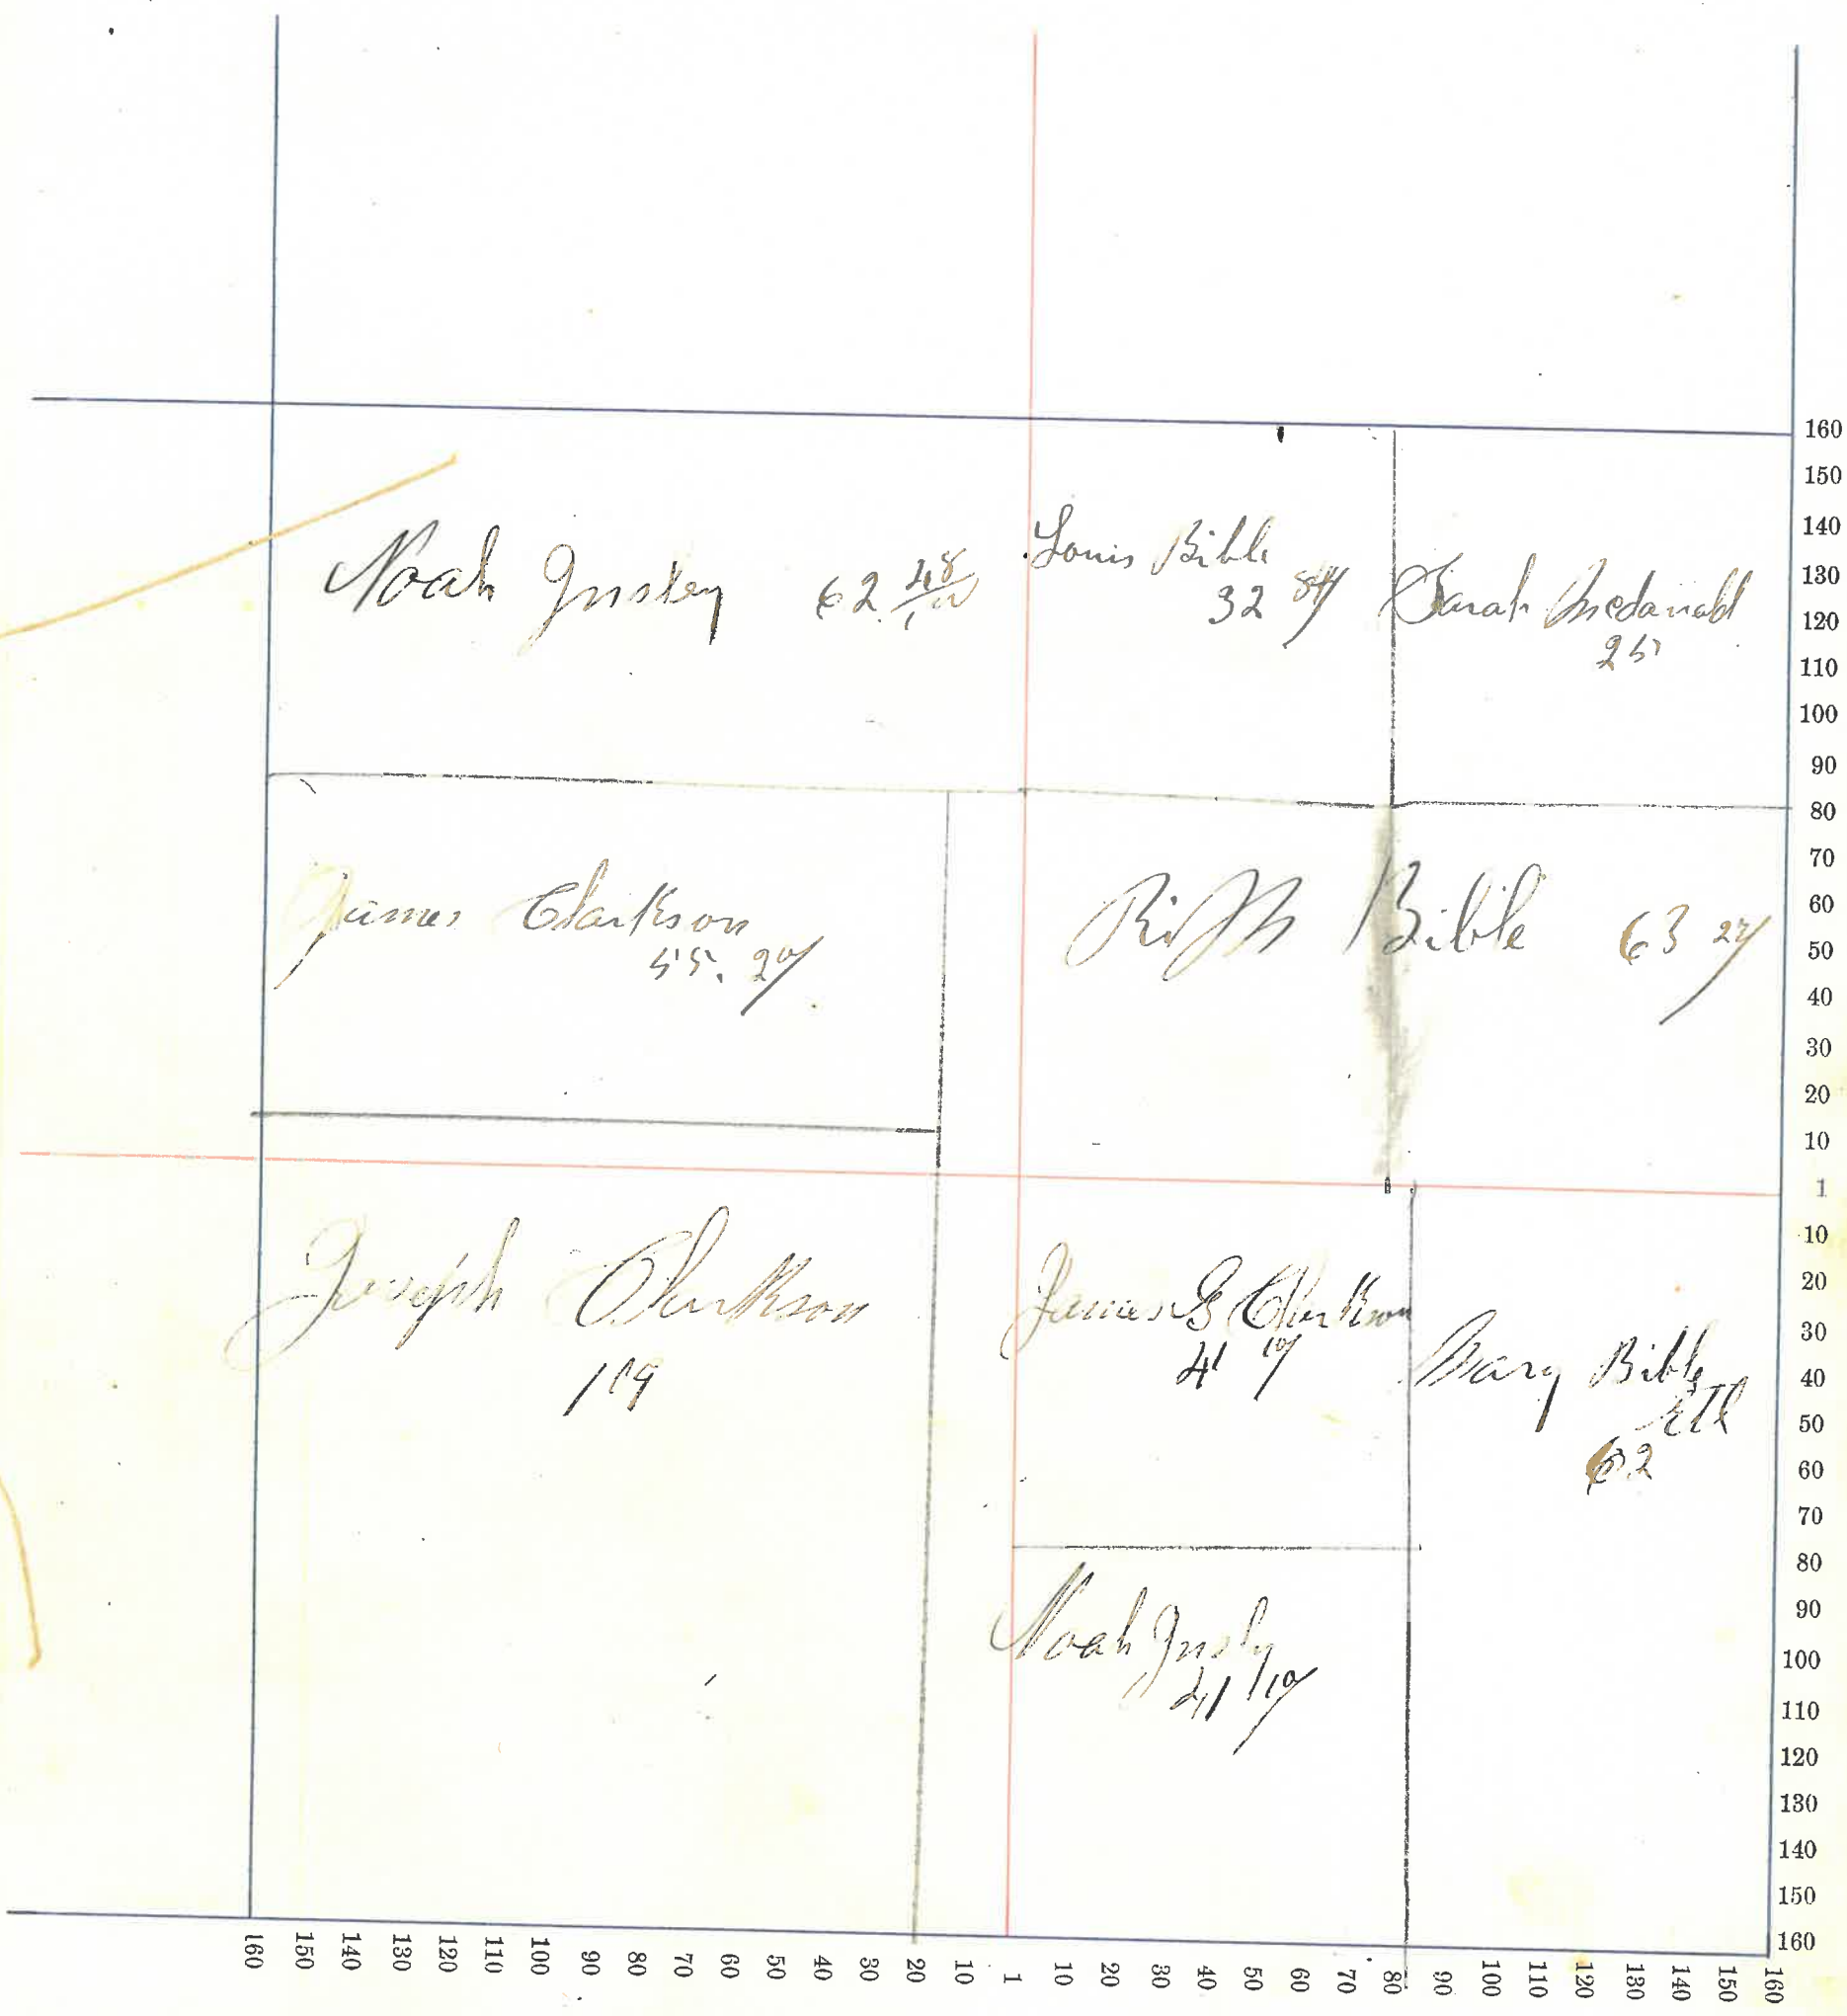 160
150
140
130
120
110
100
90
80
70
60
50
40
30
20
10
1
10
20
30
40
50
60
70
80
90
100
110
120
130
140
150
160
Noah Insley 62 48/100
Louis Bible
32 84
Sarah Mcdanald
25
James Clarkson
55. 20
Bible 63 27
Joseph Clarkson
119
James G Clarkson
41 10
Mary Bible
62
Noah Insly
41 10
160 150 140 130 120 110 100 90 80 70 60 50 40 30 20 10 1 10 20 30 40 50 60 70 80 90 100 110 120 130 140 150 160